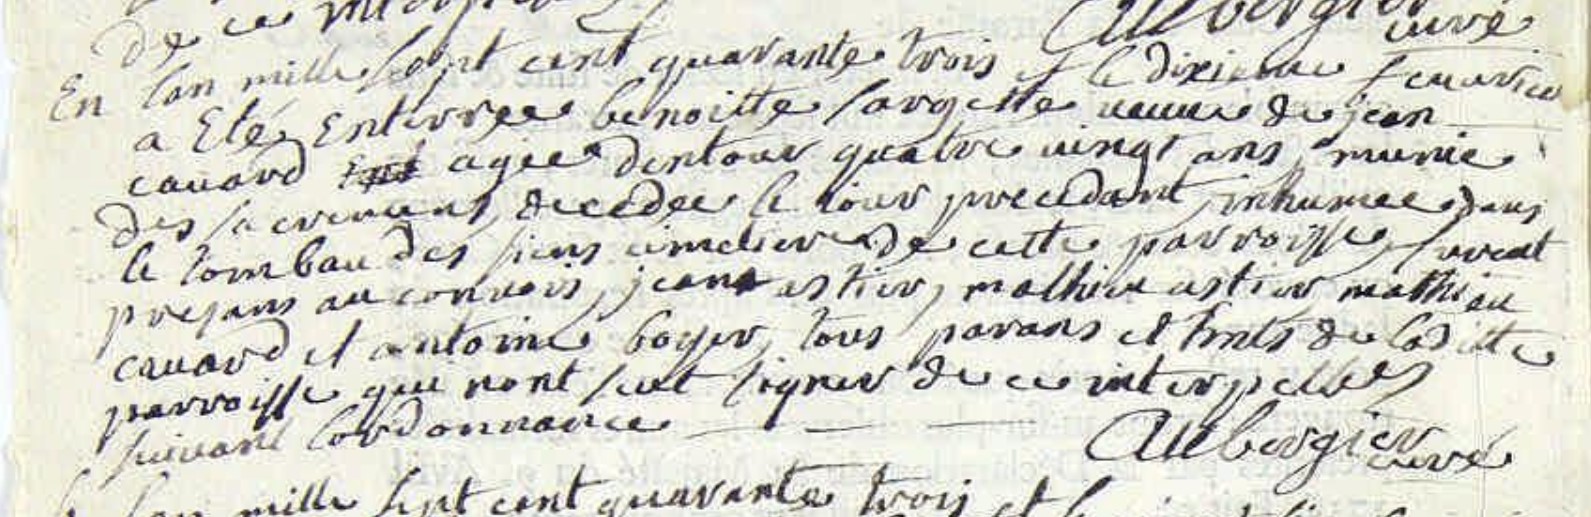 de ce interpellé Aubergier curé
En lan mille sept cent quarante trois et le dixieme feuvrier
a Eté Enterree benoitte sargette veuve de jean
cauard agée dentour quatre vingt ans, munie
des sacremens, decedee le jour precedant, inhumee dans
le tombau des siens cimetiere de cette parroisse, furent
presans au convois, jean astier, mathieu astier mathieu
cauard et antoine boyer, tous parans et hnts de laditte
parroisse qui nont sceut signer de ce interpellés
suivant lordonnance Aubergier curé
lan mille sept cent quarante trois et le